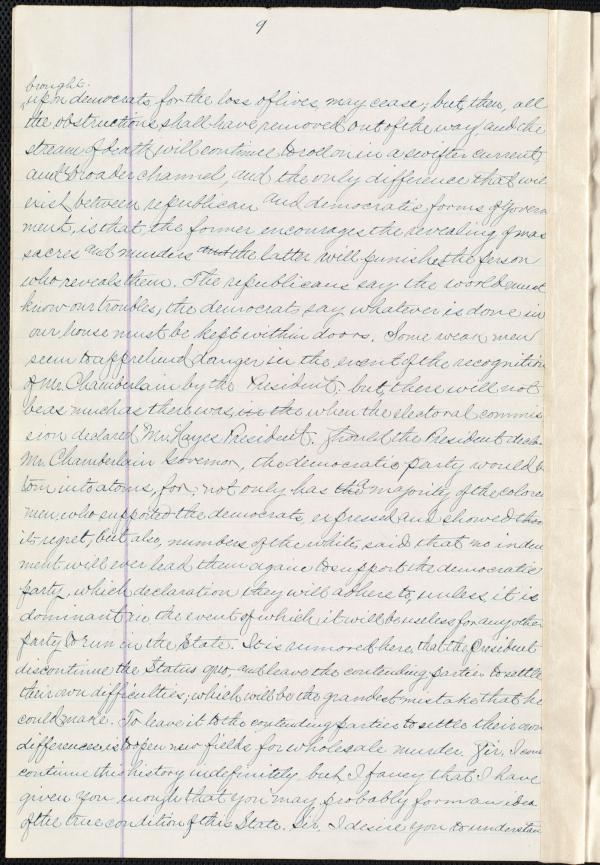 9
brought.
upon democrats, for the loss of lives, may cease; but, then, all
the obstructions shall have removed out of the way and the
stream of death will continue to roll on in a swifter current
and broader channel, and the only difference that will
exist between republican and democratic forms of govern
ment, is that, the former encourages the revealing of mas
sacres and murders and the latter will punishes the person
who reveals them. The republicans say the world must
know our troubles, the democrats, say whatever is done in
our house must be kept within doors. Some weak men
seem to apprehend danger in the event of the recognition
of Mr. Chamberlain by the President; but, there will not
be as much as there was, in the when the electoral commis
sion declared Mr. Hayes President. Should the President declare
Mr. Chamberlain Governor, the democratic party would b
torn into atoms, for; not only has the a majority of the colored
men, who supported the democrats, expressed and showed
its regret, but also, numbers of the whites, said that no induce
ment will ever lead them again to support the democratic
party, which declaration they will adhere to, unless, it is
dominant in the event of which it will be useless for any other
party to run in the State. It is rumored here, that the President
discontinue the Status quo, and leave the contending parties to settle
their own difficulties; which will be the grandest mistake that he
could make. To leave it to the contending parties to settle their own
difference is to open new fields for wholesale murder. Sir, I
continue this history indefinitely but I fancy that I have
given you enough that you may probably form an idea
of the true condition of this State. Sir, I desire you to understan